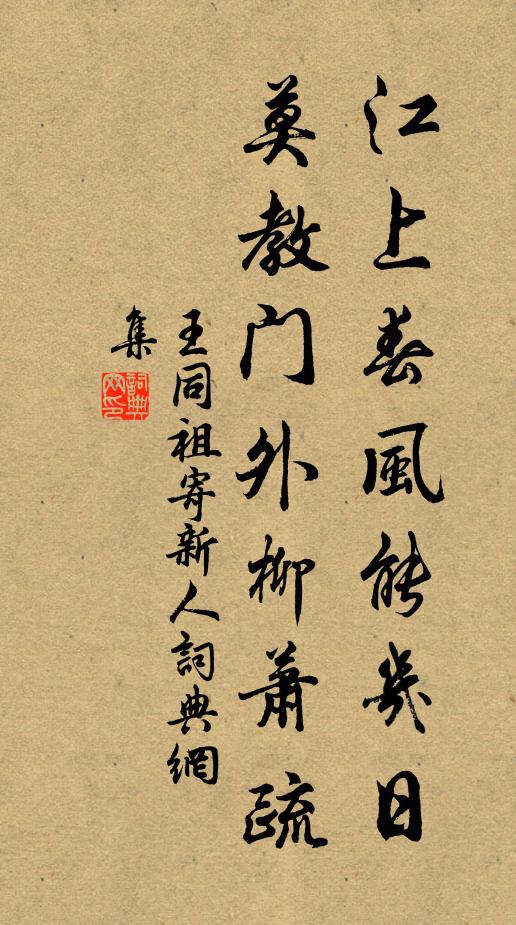 江上春風能幾日
莫教門外柳蕭疏
王同祖寄新人詞典網
集
詞典
网印